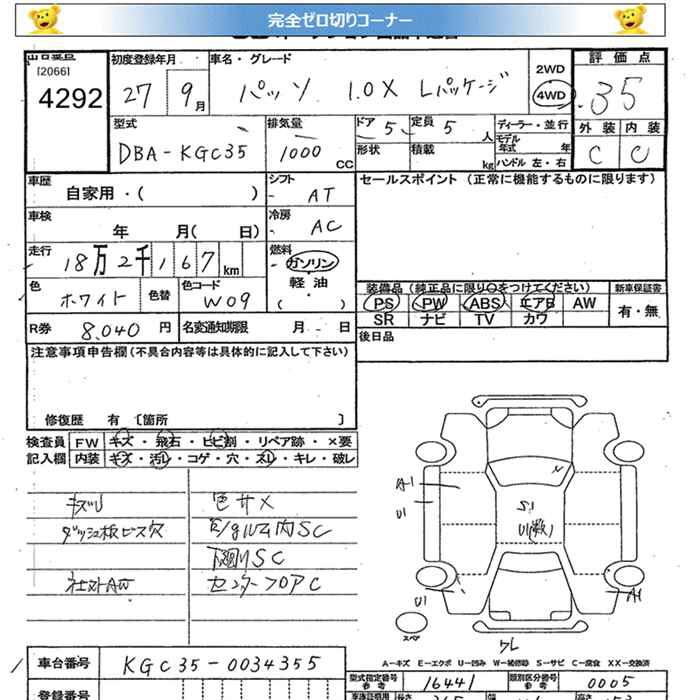 完全ゼロ切りコーナー
[2066]
4292
初度登録年月
27 9月
車名・グレード
パッソ 1.0X Lパッケージ
2WD
4WD
評価点
3.5
型式
DBA-KGC35
排気量
1000 CC
ドア 5
定員 5 人
形状
積載 kg
ディーラー・並行
モデル年式 年
ハンドル 左・右
外装 内装
C C
車歴
自家用・( )
シフト
AT
セールスポイント (正常に機能するものに限ります)
車検
年 月( 日)
冷房
AC
走行
18万2千167km
燃料
ガソリン
軽油
・
( )
色
ホワイト
色替
色コード
W09
装備品 (純正品に限り○をつけてください)
PS PW ABS エアB AW
SR ナビ TV カワ
新車保証書
有・無
R券 8,040 円
名変通知期限 月 日
後日品
注意事項申告欄(不具合内容等は具体的に記入して下さい)
修復歴 有 [箇所 ]
検査員 FW キズ・飛石・ヒビ割・リペア跡・×要
記入欄 内装 キズ・汚レ・コゲ・穴・スレ・キレ・破レ
キズU 色サメ
ダッシュ板ビス穴 内SC
下廻りSC
社外AW センターフロアC
A1
U1
S1
U1(数)
U1
A1
スペア
ワレ
A-キズ E-エクボ U-凹み W-補修跡 S-サビ C-腐食 XX-交換済
車台番号 KGC35-0034355
型式指定番号 参考 16441
類別区分番号 参考 0005
登録番号